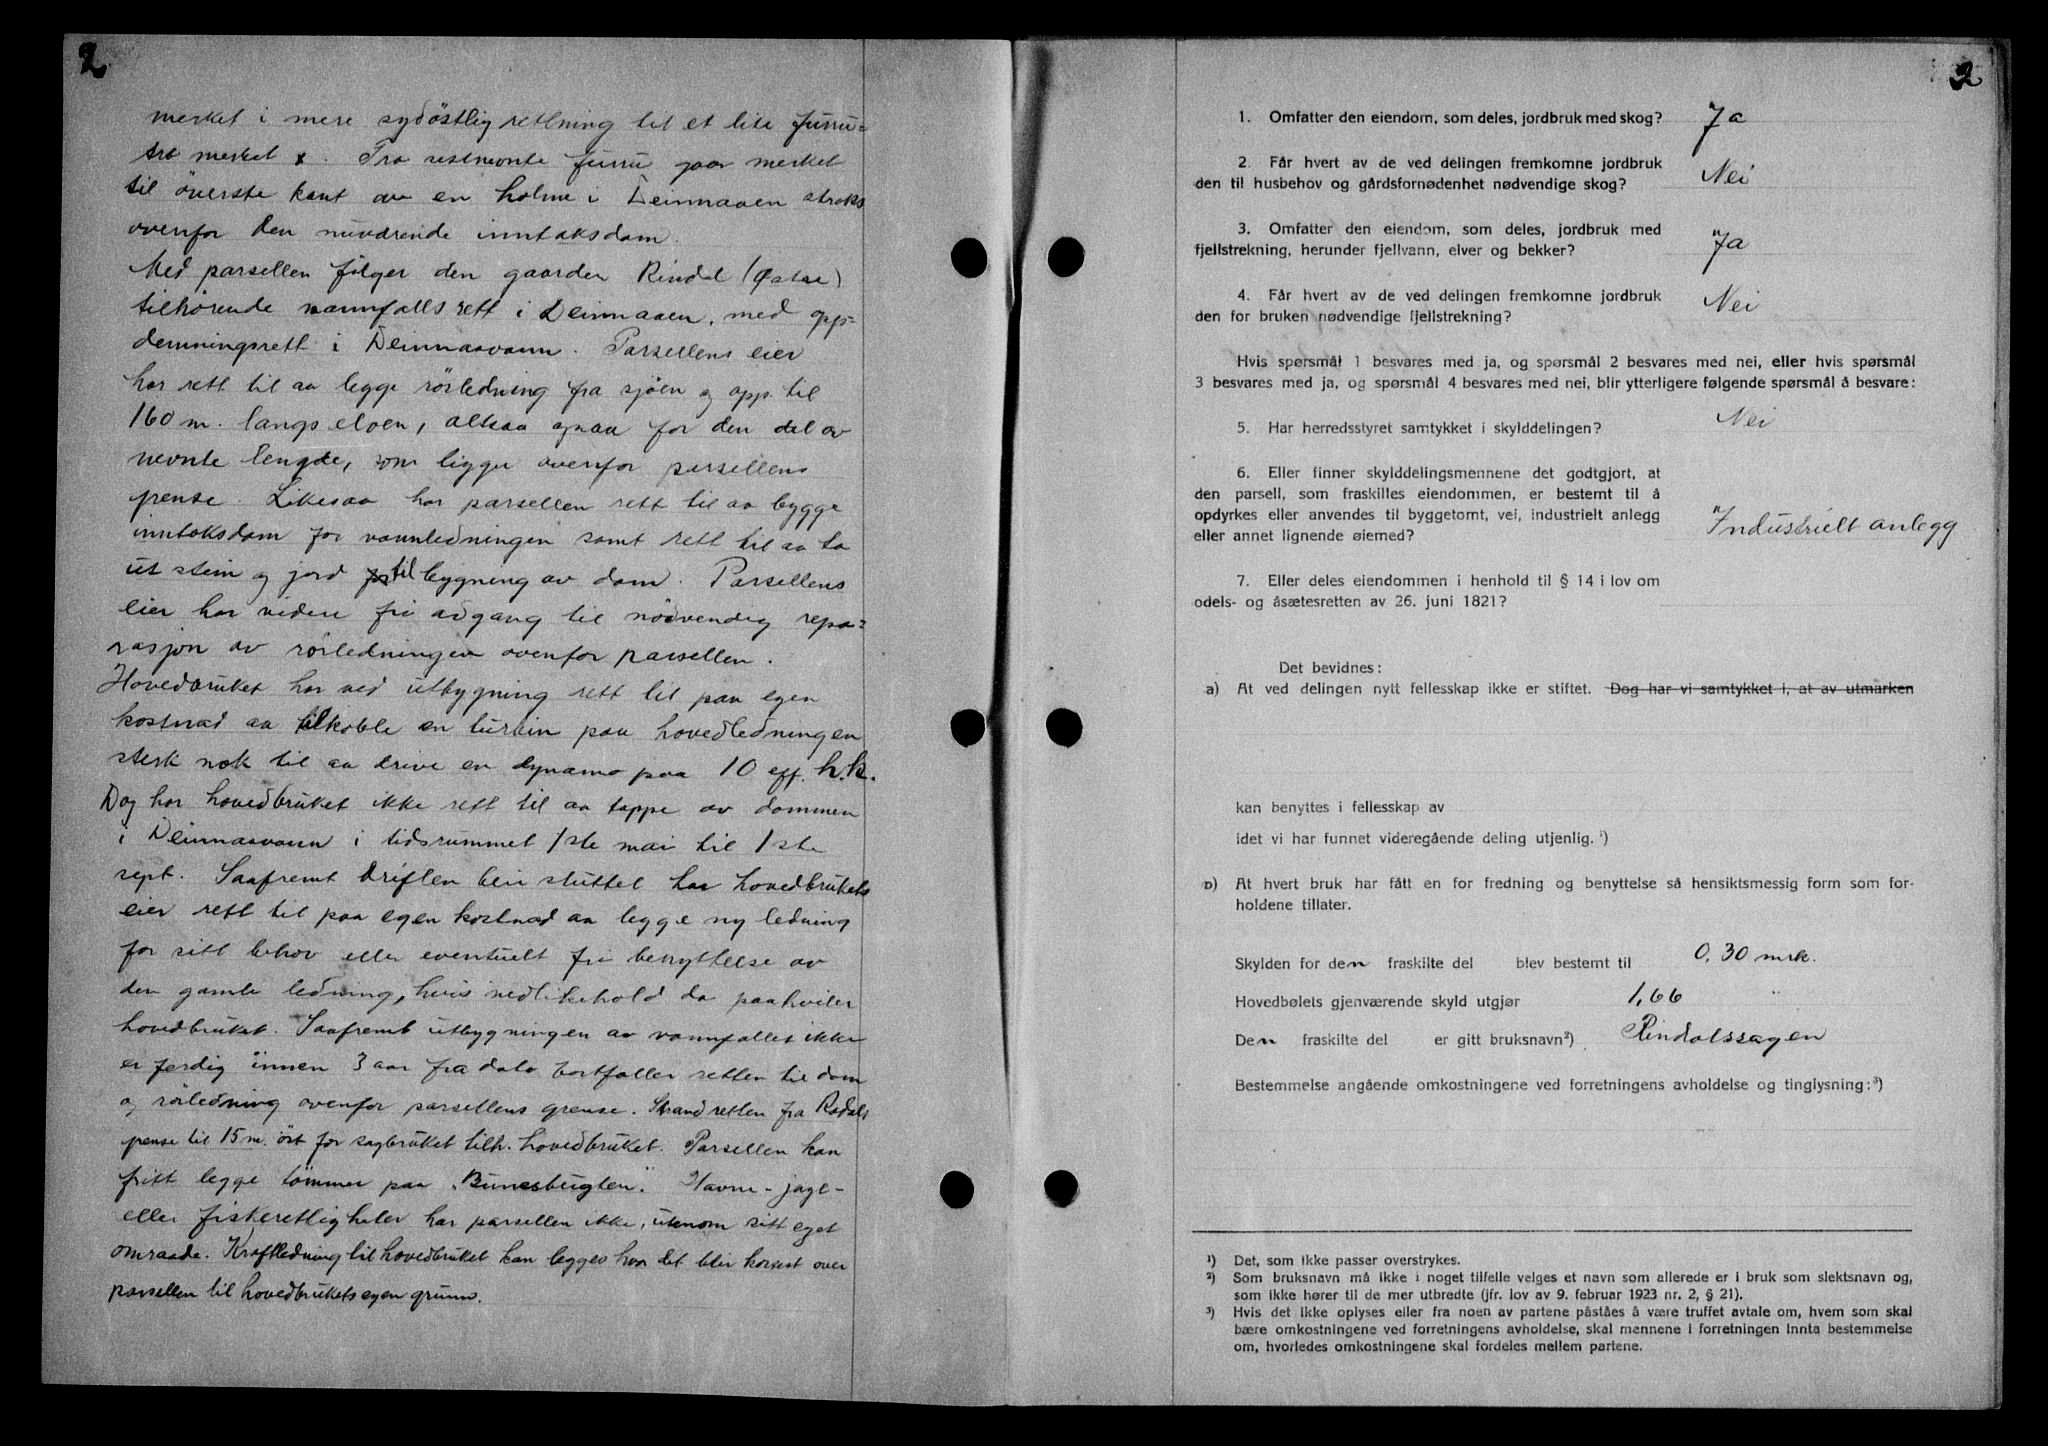 2
merket i mere sydöstlig retning til et lite furru-
tre merket x. Fra sistnevnte furru gaar merket
til överste kant av en holme i Deinnaaen straks
ovenfor den nuværende inntaksdam.
Med parsellen følger den gaarden Rindal (Østre)
tilhörende vannfallsrett i Deinnaaen, med opp-
demningsrett i Deinnaavann. Parsellens eier
har rett til aa legge rörledning fra sjöen og opp til
160 m. langs elven, altsaa ogsaa for den del av
nevnte lengde, som ligger ovenfor parsellens
grense. Likesaa har parsellen rett til aa bygge
inntaksdam for vannledningen samt rett til aa ta
ut stein og jord til bygning av dam. Parsellens
eier har videre fri adgang til nödvendig repa-
rasjon av rörledningen ovenfor parsellen.
Hovedbruket har ved utbygning rett til paa egen
kostnad aa tilkoble en turbin paa hovedledningen
sterk nok til aa drive en dynamo paa 10 eff. h.k.
Dog har hovedbruket ikke rett til aa tappe av dammen
i Deinnaavann i tidsrummet 1ste mai til 1ste
sept. Saafremt driften blir sluttet har hovedbrukets
eier rett til paa egen kostnad aa legge ny ledning
for sitt behov eller eventuelt fri benyttelse av
den gamle ledning, hvis vedlikehold da paahviler
hovedbruket. Saafremt utbygningen av vannfallet ikke
er ferdig innen 3 aar fra dato bortfaller retten til dam
og rörledning ovenfor parsellens grense. Strandretten fra Rødals
grense til 15 m. öst for sagbruket tilh. hovedbruket. Parsellen kan
fritt legge tömmer paa "Bunesbugten". Havne- jagt-
eller fiskerettigheter har parsellen ikke, utenom sitt eget
omraade. Kraftledning til hovedbruket kan legges hvor det blir kortest over
parsellen til hovedbrukets egen grunn.
2
1. Omfatter den eiendom, som deles, jordbruk med skog? Ja
2. Får hvert av de ved delingen fremkomne jordbruk
den til husbehov og gårdsfornødenhet nødvendige skog? Nei
3. Omfatter den eiendom, som deles, jordbruk med
fjellstrekning, herunder fjellvann, elver og bekker? Ja
4. Får hvert av de ved delingen fremkomne jordbruk
den for bruken nødvendige fjellstrekning? Nei
Hvis spørsmål 1 besvares med ja, og spørsmål 2 besvares med nei, eller hvis spørsmål
3 besvares med ja, og spørsmål 4 besvares med nei, blir ytterligere følgende spørsmål å besvare:
5. Har herredsstyret samtykket i skylddelingen? Nei
6. Eller finner skylddelingsmennene det godtgjort, at
den parsell, som fraskilles eiendommen, er bestemt til å
opdyrkes eller anvendes til byggetomt, vei, industrielt anlegg
eller annet lignende øiemed? Industrielt anlegg
7. Eller deles eiendommen i henhold til § 14 i lov om
odels- og åsætesretten av 26. juni 1821?
Det bevidnes:
a) At ved delingen nytt fellesskap ikke er stiftet. Dog har vi samtykket i, at av utmarken
kan benyttes i fellesskap av
idet vi har funnet videregående deling utjenlig. ¹)
b) At hvert bruk har fått en for fredning og benyttelse så hensiktsmessig form som for-
holdene tillater.
Skylden for den fraskilte del blev bestemt til 0,30 mrk.
Hovedbølets gjenværende skyld utgjør 1,66 "
Den fraskilte del er gitt bruksnavn²) Rindalssagen
Bestemmelse angående omkostningene ved forretningens avholdelse og tinglysning:³)
¹) Det, som ikke passer overstrykes.
²) Som bruksnavn må ikke i noget tilfelle velges et navn som allerede er i bruk som slektsnavn og,
som ikke hører til de mer utbredte (jfr. lov av 9. februar 1923 nr. 2, § 21).
³) Hvis det ikke oplyses eller fra noen av partene påståes å være truffet avtale om, hvem som skal
bære omkostningene ved forretningens avholdelse, skal mennene i forretningen innta bestemmelse
om, hvorledes omkostningene skal fordeles mellem partene.